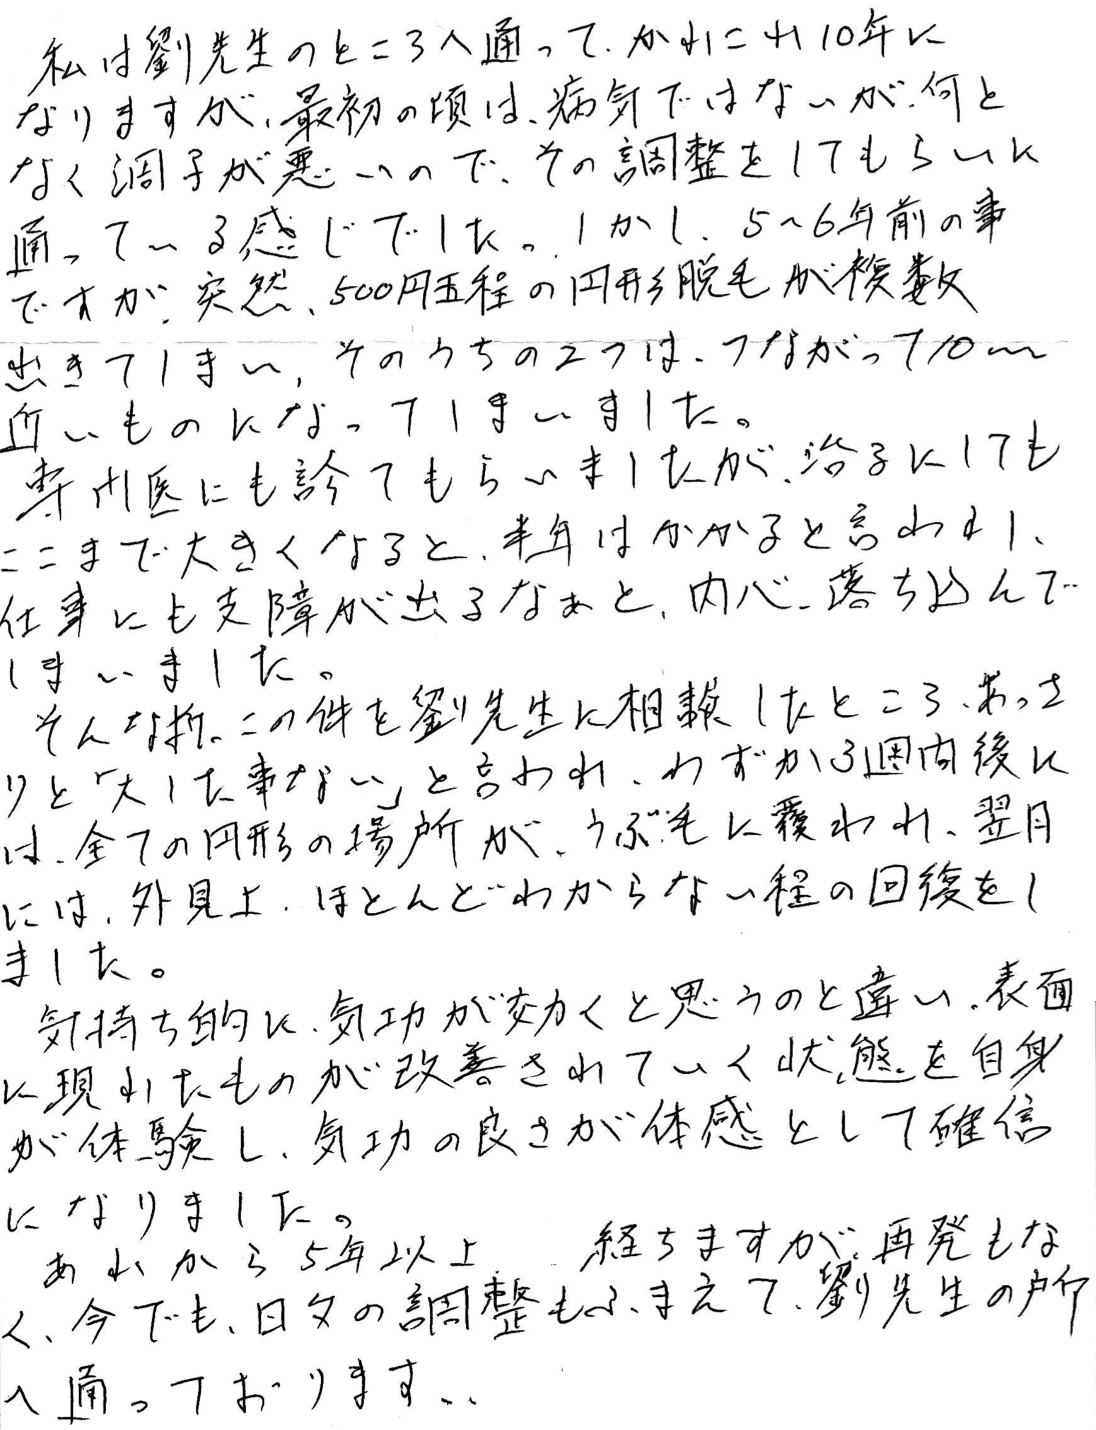 私は劉先生のところへ通って、かれこれ10年に
なりますが、最初の頃は、病気ではないが、何と
なく調子が悪いので、その調整をしてもらいに
通っている感じでした。しかし、5〜6年前の事
ですが、突然、500円玉程の円形脱毛が複数
出きてしまい、そのうちの2つは、つながって10cm
近いものになってしまいました。
専門医にも診てもらいましたが、治るにしても
ここまで大きくなると、半年はかかると言われ、
仕事にも支障が出るなぁと、内心、落ち込んで
しまいました。
そんな折、この件を劉先生に相談したところ、あっさ
りと「大した事ない」と言われ、わずか3週間後に
は、全ての円形の場所が、うぶ毛に覆われ、翌月
には、外見上、ほとんどわからない程の回復をし
ました。
気持ち的に、気功が効くと思うのと違い、表面
に現れたものが改善されていく状態を自身
が体験し、気功の良さが体感として確信
になりました。
あれから5年以上 経ちますが、再発もな
く、今でも、日々の調整もふまえて、劉先生の所
へ通っております…